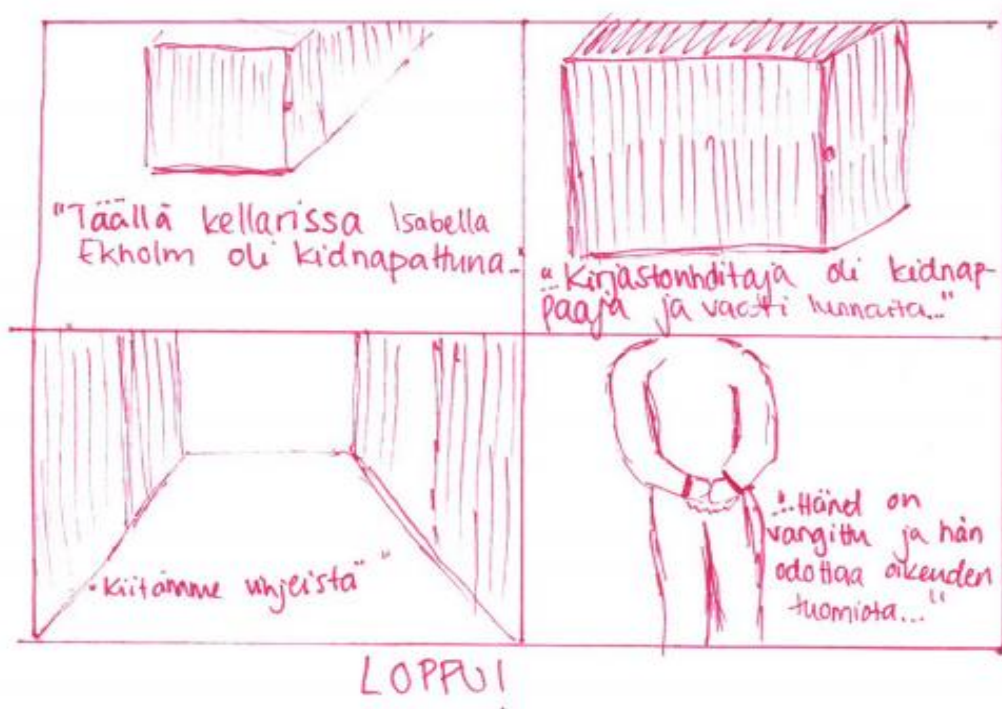 "Täällä kellarissa Isabella
Ekholm oli kidnapattuna...
"...Kirjastonhoitaja oli kidnap-
paaja ja vaati lunnaita..."
"...Kiitämme vihjeistä"
"...Hänet on
vangittu ja hän
odottaa oikeuden
tuomiota..."
LOPPU!